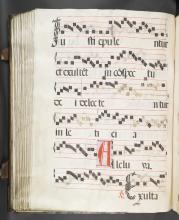 Iu sti epule ntur
et exultēt in cōspec tu
de i delecte ntur
in le ti ci a
Allelu ya.
Exulta